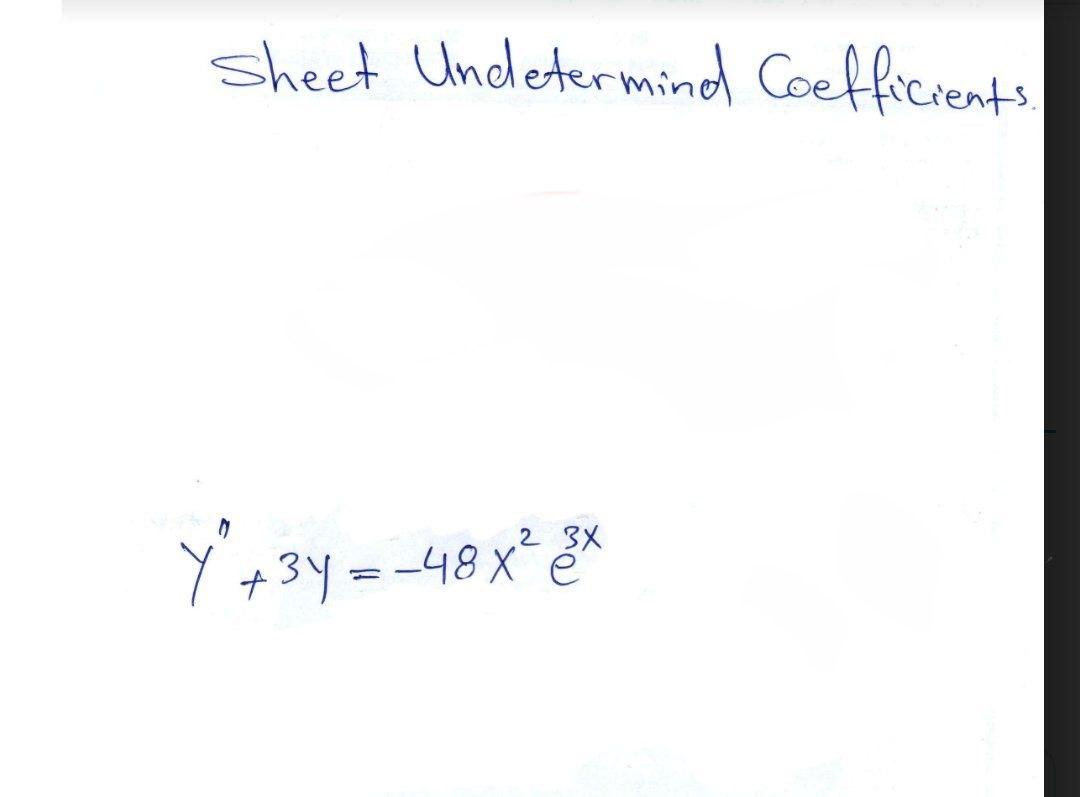 Sheet Undetermind Coefficients.
y" + 3y = -48 x² e³ˣ